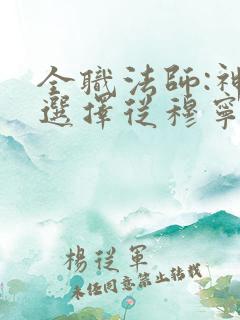 全職法師:神
選擇從穆寧
楊從軍
未任同意禁止轉載